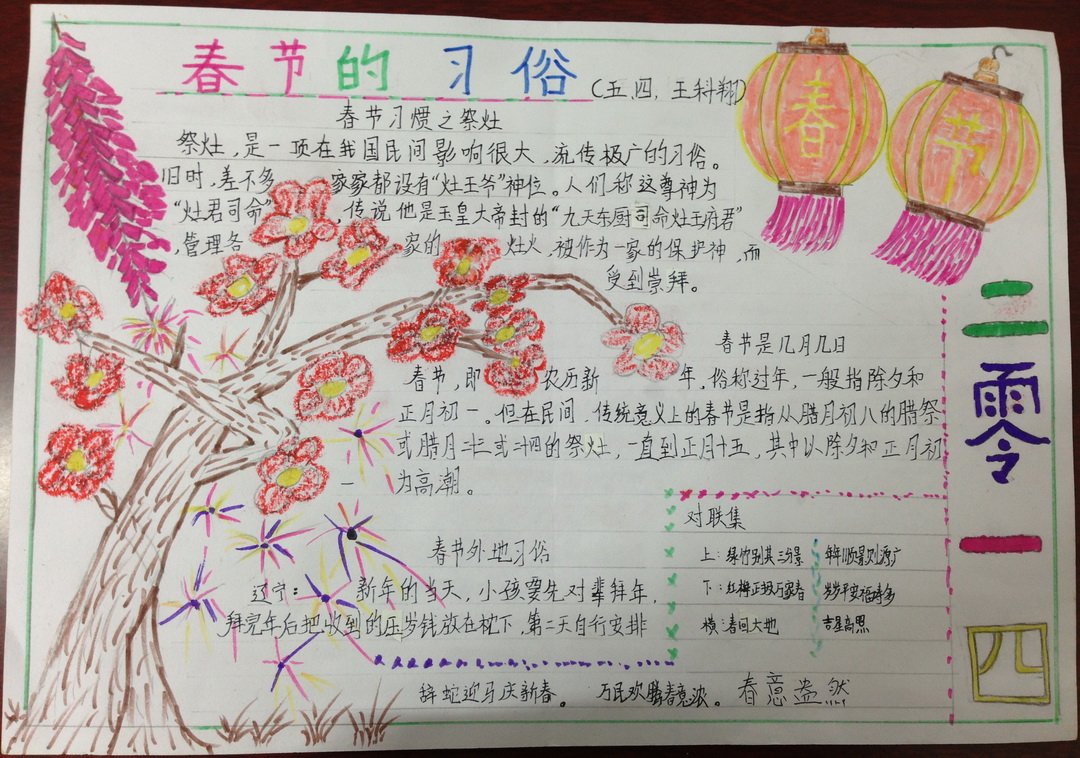 春节的习俗
(五、四，王科翔)
春节习惯之祭灶
祭灶，是一项在我国民间影响很大、流传极广的习俗。
旧时，差不多家家都设有“灶王爷”神位。人们称这尊神为
“灶君司命”，传说他是玉皇大帝封的“九天东厨司命灶王府君”
，管理各家的灶火，被作为一家的保护神，而
受到崇拜。
春节
春节是几月几日
春节，即农历新年，俗称过年，一般指除夕和
正月初一。但在民间，传统意义上的春节是指从腊月初八的腊祭
或腊月二十三或二十四的祭灶，一直到正月十五，其中以除夕和正月初
一为高潮。
春节外地习俗
辽宁：新年的当天，小孩要先对辈拜年，
拜完年后把收到的压岁钱放在枕下，第二天自行安排
对联集
上：绿竹别其三分景 年年顺景则源广
下：红梅正报万家春 岁岁平安福寿多
横：春回大地 吉星高照
辞蛇迎马庆新春。万民欢腾春意浓。春意盎然
二零一四